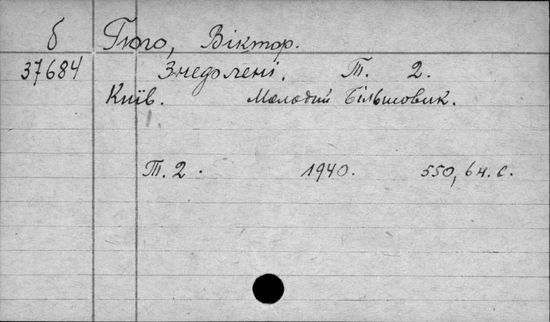 б Гюго, Віктор.
37684 Знедолені. Т. 2.
Київ. Молодий Більшовик.
Т. 2. 1940. 550, 6 н. с.